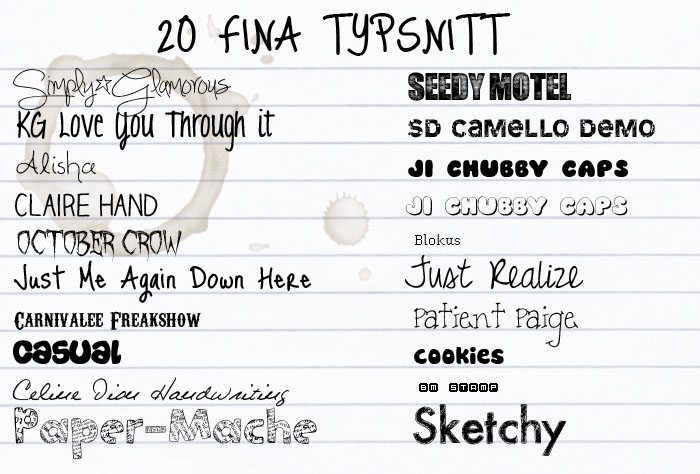 20 FINA TYPSNITT
Simply☆Glamorous
KG Love You Through it
Alisha
CLAIRE HAND
OCTOBER CROW
Just Me Again Down Here
Carnivalee Freakshow
casual
Celine Dion Handwriting
Paper-Mache
SEEDY MOTEL
SD CaMeLLO DeMO
JI CHUBBY CAPS
JI CHUBBY CAPS
Blokus
Just Realize
Patient Paige
cookies
BM STAMP
Sketchy